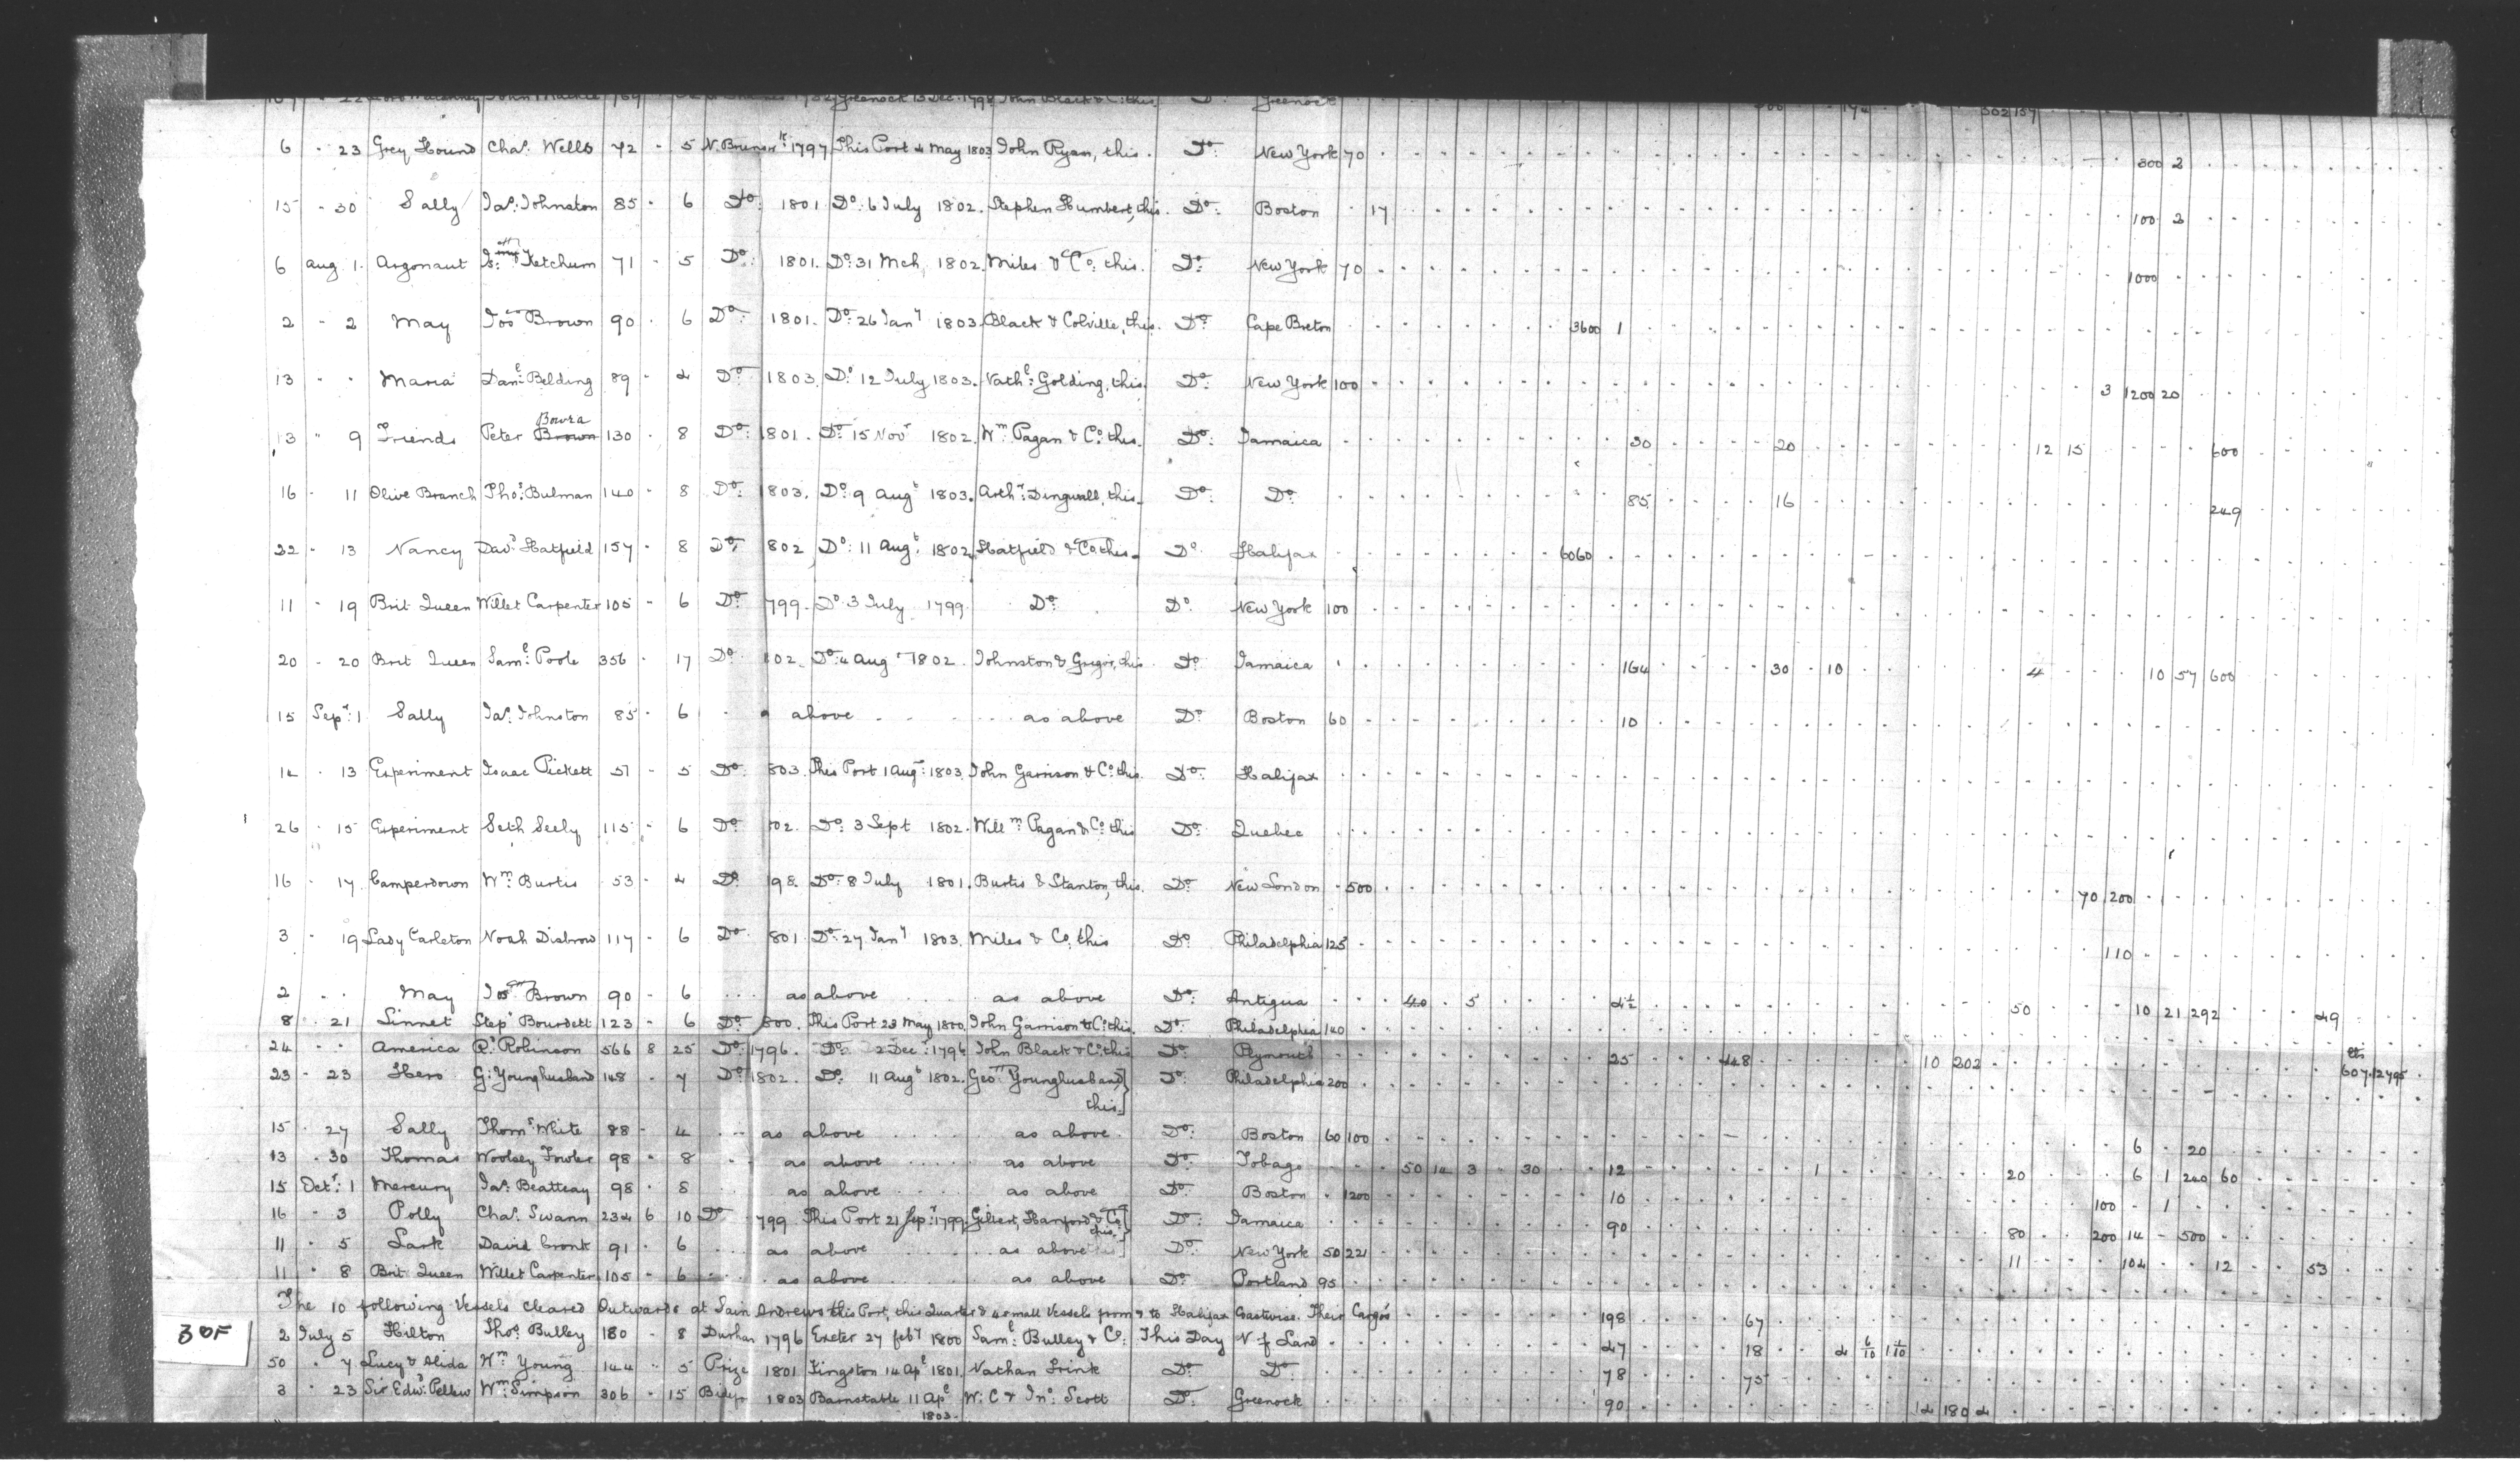 Greenock 13 Dec. 1798 John Black & Co: this. Do Greenock 302 157
6 - 23 Grey Hound Chas. Wells 72 - 5 N. Brunswk: 1797 This Port 4 May 1803 John Ryan, this. Do: New York 70 300 2
15 - 30 Sally Jas: Johnston 85 - 6 Do: 1801 Do: 6 July 1802. Stephen Humbert, this. Do: Boston 17 100 2
6 Aug 1. Argonaut Ketchum 71 - 5 Do: 1801. Do: 31 Mch, 1802. Miles & Co: this. Do: New York 70 1000
2 - 2 May Jos Brown 90 - 6 Do: 1801. Do: 26 Jany 1803. Black & Colville, this. Do: Cape Breton 3600 1
13 - - Maria Danl: Belding 89 - 4 Do: 1803. Do 12 July 1803. Nathl: Golding, this. Do: New York 100 3 1200 20
Bovra
13 " 9 Friends Peter Brown 130 - 8 Do: 1801. Do 15 Novr 1802. Wm Pagan & Co: this. Do: Jamaica 30 20 12 15 600
16 - 11 Olive Branch Thos: Bulman 140 - 8 Do: 1803. Do: 9 Augt 1803. Arthr: Dingwall, this. Do: Do: 85 16 249
22 - 13 Nancy Davd Hatfield 157 - 8 Do: 802 Do: 11 Augt: 1802. Hatfield & Co: this. Do. Halifax 6060
11 - 19 Brit Queen Willet Carpenter 105 - 6 Do: 799. Do. 3 July 1799. Do: Do New York 100
20 - 20 Brit Queen Saml: Poole 356 - 17 Do: 802. Do: 4 Aug 1802. Johnston & Gregor, this Do: Jamaica 164 30 - 10 4 10 57 600
15 Sepr: 1 Sally Jas: Johnston 85 - 6 above as above Do: Boston 60 10
14 - 13 Experiment Isaac Pickett 51 - 5 Do: 803. This Port 1 Aug: 1803. John Garrison & Co: this. Do: Halifax
26 - 15 Experiment Seth Seely 115 - 6 Do: 02. Do: 3 Sept 1802. Willm: Pagan & Co: this Do: Quebec
16 - 17. Camperdown Wm: Burtis 53 - 4 Do 98. Do: 8 July 1801. Burtis & Stanton, this. Do: New London - 500 70 200
3 - 19 Lady Carleton Noah Disbrow 117 - 6 Do: 801. Do: 27 Jany 1803. Miles & Co, this Do: Philadelphia 125 110
2 - - May Jos Brown 90 - 6 as above as above Do: Antigua 40 . 5 4½ 50 10 21 292 49
8 . 21 Linnet Stepn Bourdett 123 - 6 Do: 800. This Port 23 May 1800. John Garrison & Co: this. Do: Philadelphia 140
24 - - America Rt Robinson 566 8 25 Do: 1796. Do: 2 Dec: 1796 John Black & Co: this Do: Plymouth 25 448 10 202 lbs 607.12795
23 - 23 Hero G: Younghusband 148 - 7 Do: 1802. Do: 11 Augt 1802. Geo: Younghusband Do: Philadelphia 200
this.
15 . 27 Sally Thoms: White 88 - 4 as above as above. Do: Boston 60 100 6 - 20
13 . 30 Thomas Woolsey Fowler 98 - 8 as above as above Do: Tobago 50 14 3 - 30 12 1 20 6 1 240 60
15 Octr: 1 Mercury Jas: Beatteay 98 - 8 as above as above Do: Boston - 1200 10 100 - 1
16 - 3 Polly Chas. Swann 234 6 10 Do 799. This Port 21 Sepr: 1799. Gilbert, Hanford & Co this. Do: Jamaica 90 80 200 14 - 500
11 - 5 Lark David Cronk 91 - 6 as above as above Do: New York 50 221 11 104 12 53
11 " 8 Brit: Queen Willet Carpenter 105 - 6 as above as above Do: Portland 95
The 10 following Vessels cleared Outwards at Saint Andrews this Port, this Quarter & 4 small Vessels from & to Halifax Coastwise. Their Cargos 198 67
2 July 5 Hilton Thos: Bulley 180 - 8 Durham 1796 Exeter 27 feby 1800 Saml: Bulley & Co: This Day N f Land 47 18 4 6/10 1 1/10
50 . 7 Lucy & Alida Wm Young 144 - 5 Prize 1801 Kingston 14 Apl: 1801. Nathan Frink Do: Do: 78 75
3 - 23 Sir Edwd: Pellew Wm: Simpson 306 - 15 Bidefr 1803 Barnstable 11 Apl W. C & Jno: Scott Do: Greenock 90 14 180 4
1803.
30F